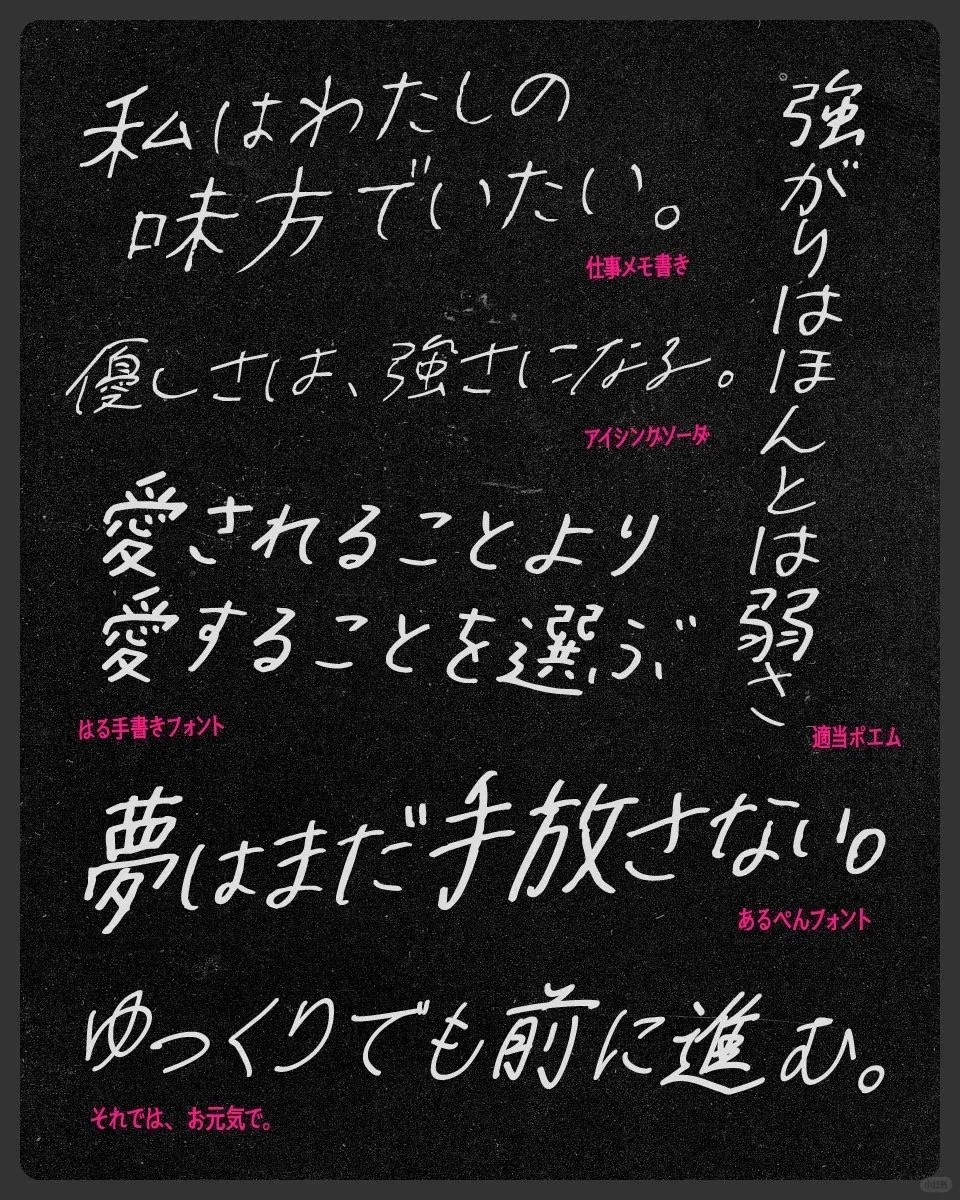 私はわたしの
味方でいたい。
仕事メモ書き
優しさは、強さになる。
アイシングソーダ
愛されることより
愛することを選ぶ
はる手書きフォント
強がりはほんとは弱さ
適当ポエム
夢はまだ手放さない。
あるぺんフォント
ゆっくりでも前に進む。
それでは、お元気で。
小红书